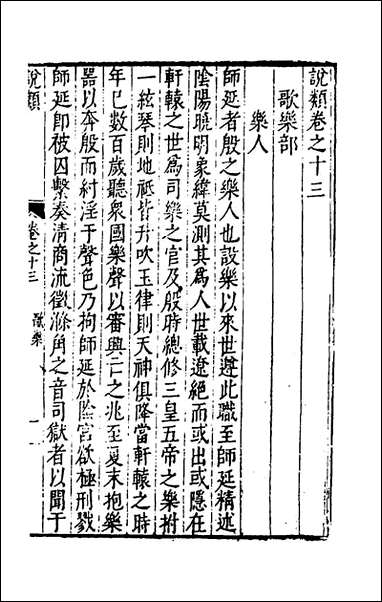 說類卷之十三
歌樂部
樂人
師延者殷之樂人也設樂以來世遵此職至師延精述
陰陽曉明象緯莫測其爲人世載遼絕而或出或隱在
軒轅之世爲司樂之官及殷時總修三皇五帝之樂拊
一絃琴則地祇皆升吹玉律則天神俱降當軒轅之時
年已數百歲聽衆國樂聲以審興亡之兆至夏末抱樂
器以奔殷而紂淫于聲色乃拘師延於陰宮欲極刑戮
師延即被囚繫奏清商流徵滌角之音司獄者以聞于
說類
卷之十三
歌樂
一